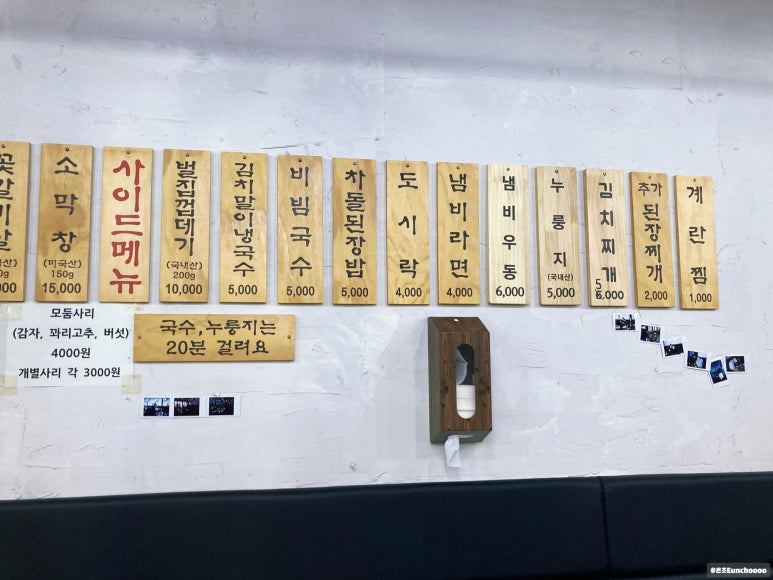 꽃갈비살
소막창
(미국산)
150g
15,000
사이드메뉴
벌집껍데기
(국내산)
200g
10,000
김치말이냉국수
5,000
비빔국수
5,000
차돌된장밥
5,000
도시락
4,000
냄비라면
4,000
냄비우동
6,000
누룽지
(국내산)
5,000
김치찌개
추가
된장찌개
2,000
계란찜
1,000
모둠사리
(감자, 꽈리고추, 버섯)
4000원
개별사리 각 3000원
국수,누룽지는
20분 걸려요
@은조Eunchoooo